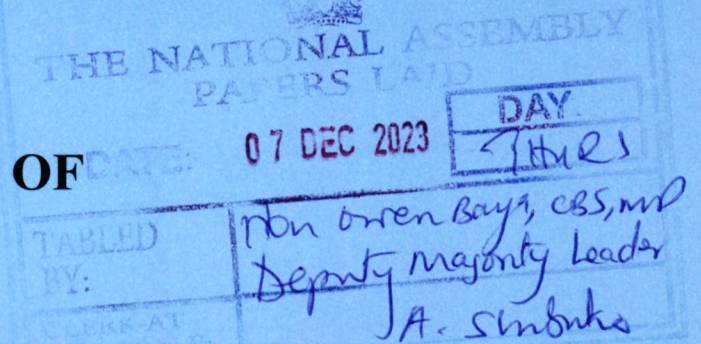 THE NATIONAL ASSEMBLY
PAPERS LAID
DATE: 07 DEC 2023 DAY.
THURS
OF
TABLED BY: Hon Owen Baya, CBS, MP
Deputy Majority Leader
CLERK-AT
A.